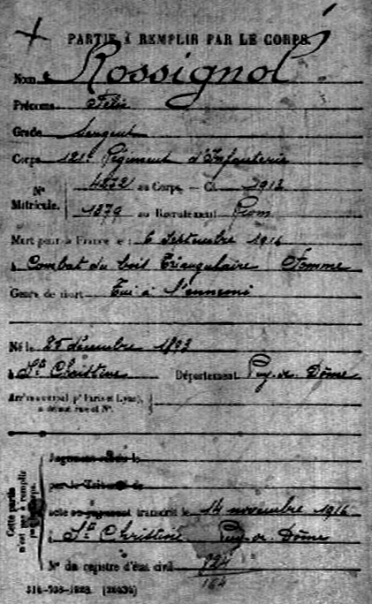 PARTIE À REMPLIR PAR LE CORPS.
Nom Rossignol
Prénoms Félix
Grade Sergent
Corps 121e Régiment d'Infanterie
N° Matricule. au Corps. — Cl. 1913
1379 au Recrutement Riom
Mort pour la France le 6 septembre 1916
à Combat du bois Triangulaire Somme
Genre de mort Tué à l'ennemi
Né le 25 décembre 1893
à Ste Christine Département Puy-de-Dôme
Arr' municipal (pr Paris et Lyon),
à défaut rue et N°.
Jugement rendu le
par le Tribunal de
acte ou jugement transcrit le 14 novembre 1916
à Ste Christine Puy-de-Dôme
N° du registre d'état civil
Cette partie
n'est pas à remplir
par le Corps.